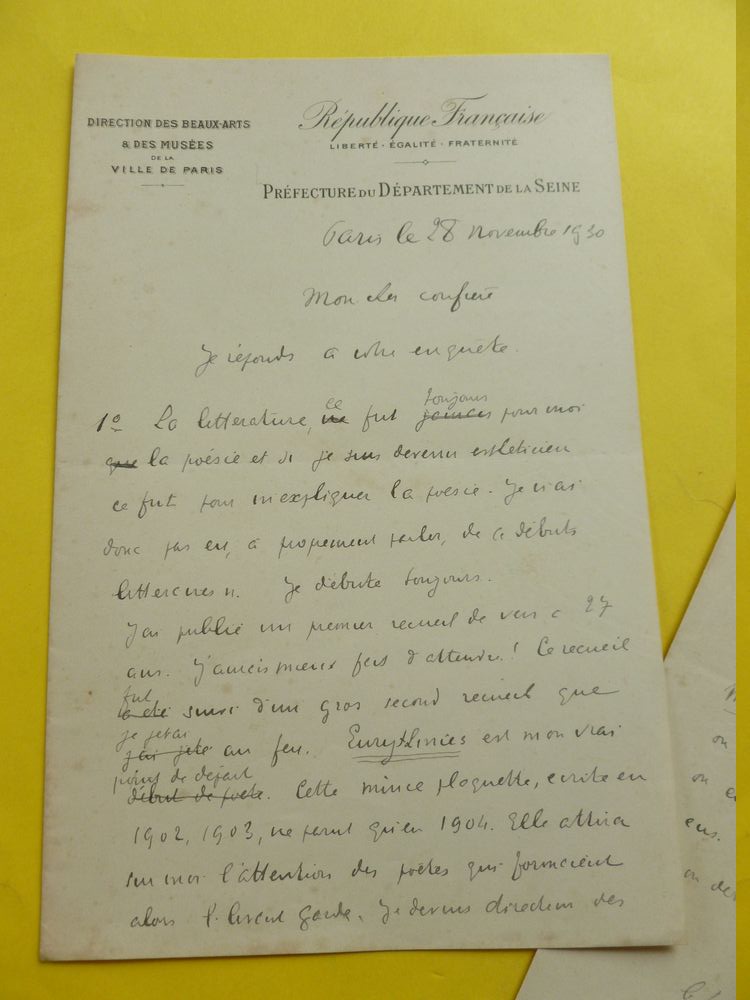 DIRECTION DES BEAUX-ARTS
& DES MUSÉES
DE LA
VILLE DE PARIS
République Française
LIBERTÉ - ÉGALITÉ - FRATERNITÉ
PRÉFECTURE DU DÉPARTEMENT DE LA SEINE
Paris le 28 novembre 1930
Mon cher confrère
Je réponds à votre enquête.
1º La littérature, ne ce fut jamais toujours pour moi
que la poésie et si je suis devenu esthéticien
ce fut pour m'expliquer la poésie. Je n'ai
donc pas eu, à proprement parler, de « débuts
littéraires ». Je débute toujours.
J'ai publié un premier recueil de vers à 27
ans. J'aurais mieux fait d'attendre! Ce recueil
fut
a été suivi d'un gros second recueil que
je jetai
j'ai jeté au feu. Eurythmies est mon vrai
point de départ
début de poète. Cette mince plaquette, écrite en
1902, 1903, ne parut qu'en 1904. Elle attira
sur moi l'attention des poètes qui formaient
alors l'avant garde. Je devins directeur des
on
on
ens.
on